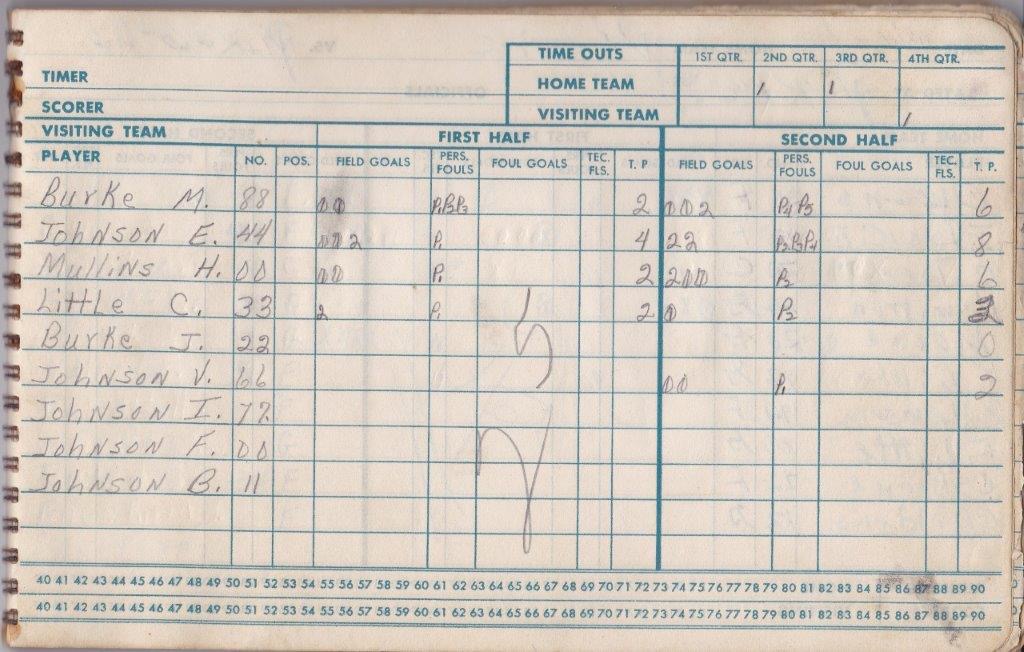 TIME OUTS 1ST QTR. 2ND QTR. 3RD QTR. 4TH QTR.
TIMER
HOME TEAM / /
SCORER
VISITING TEAM /
VISITING TEAM FIRST HALF SECOND HALF
PLAYER NO. POS. FIELD GOALS PERS. FOULS FOUL GOALS TEC. FLS. T. P FIELD GOALS PERS. FOULS FOUL GOALS TEC. FLS. T. P.
Burke M. 88 P1P2P3 2 2 P4 P5 6
Johnson E. 44 2 P1 4 22 P2P3P4 8
Mullins H. 00 P1 2 2 P2 6
Little C. 33 2 P1 2 P2
Burke J. 22 0
Johnson V. 66 P1 2
Johnson I. 77
Johnson F. 00
Johnson B. 11
40 41 42 43 44 45 46 47 48 49 50 51 52 53 54 55 56 57 58 59 60 61 62 63 64 65 66 67 68 69 70 71 72 73 74 75 76 77 78 79 80 81 82 83 84 85 86 87 88 89 90
40 41 42 43 44 45 46 47 48 49 50 51 52 53 54 55 56 57 58 59 60 61 62 63 64 65 66 67 68 69 70 71 72 73 74 75 76 77 78 79 80 81 82 83 84 85 86 87 88 89 90